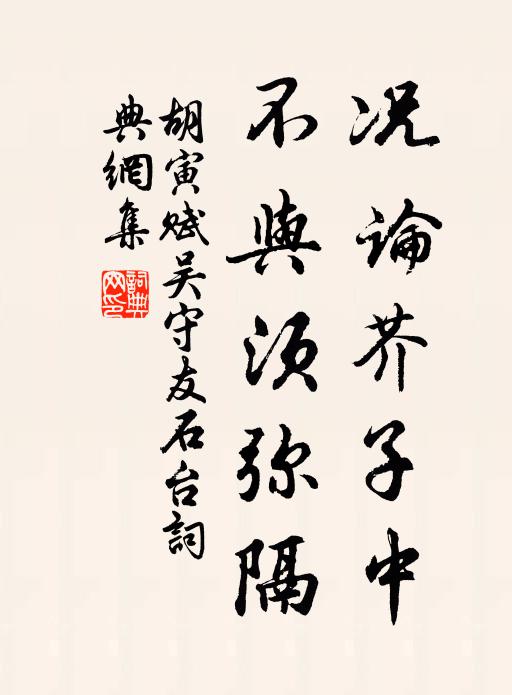 况论芥子中
不與须弥隔
胡寅赋吴守友石台詞
典網集
詞典網印